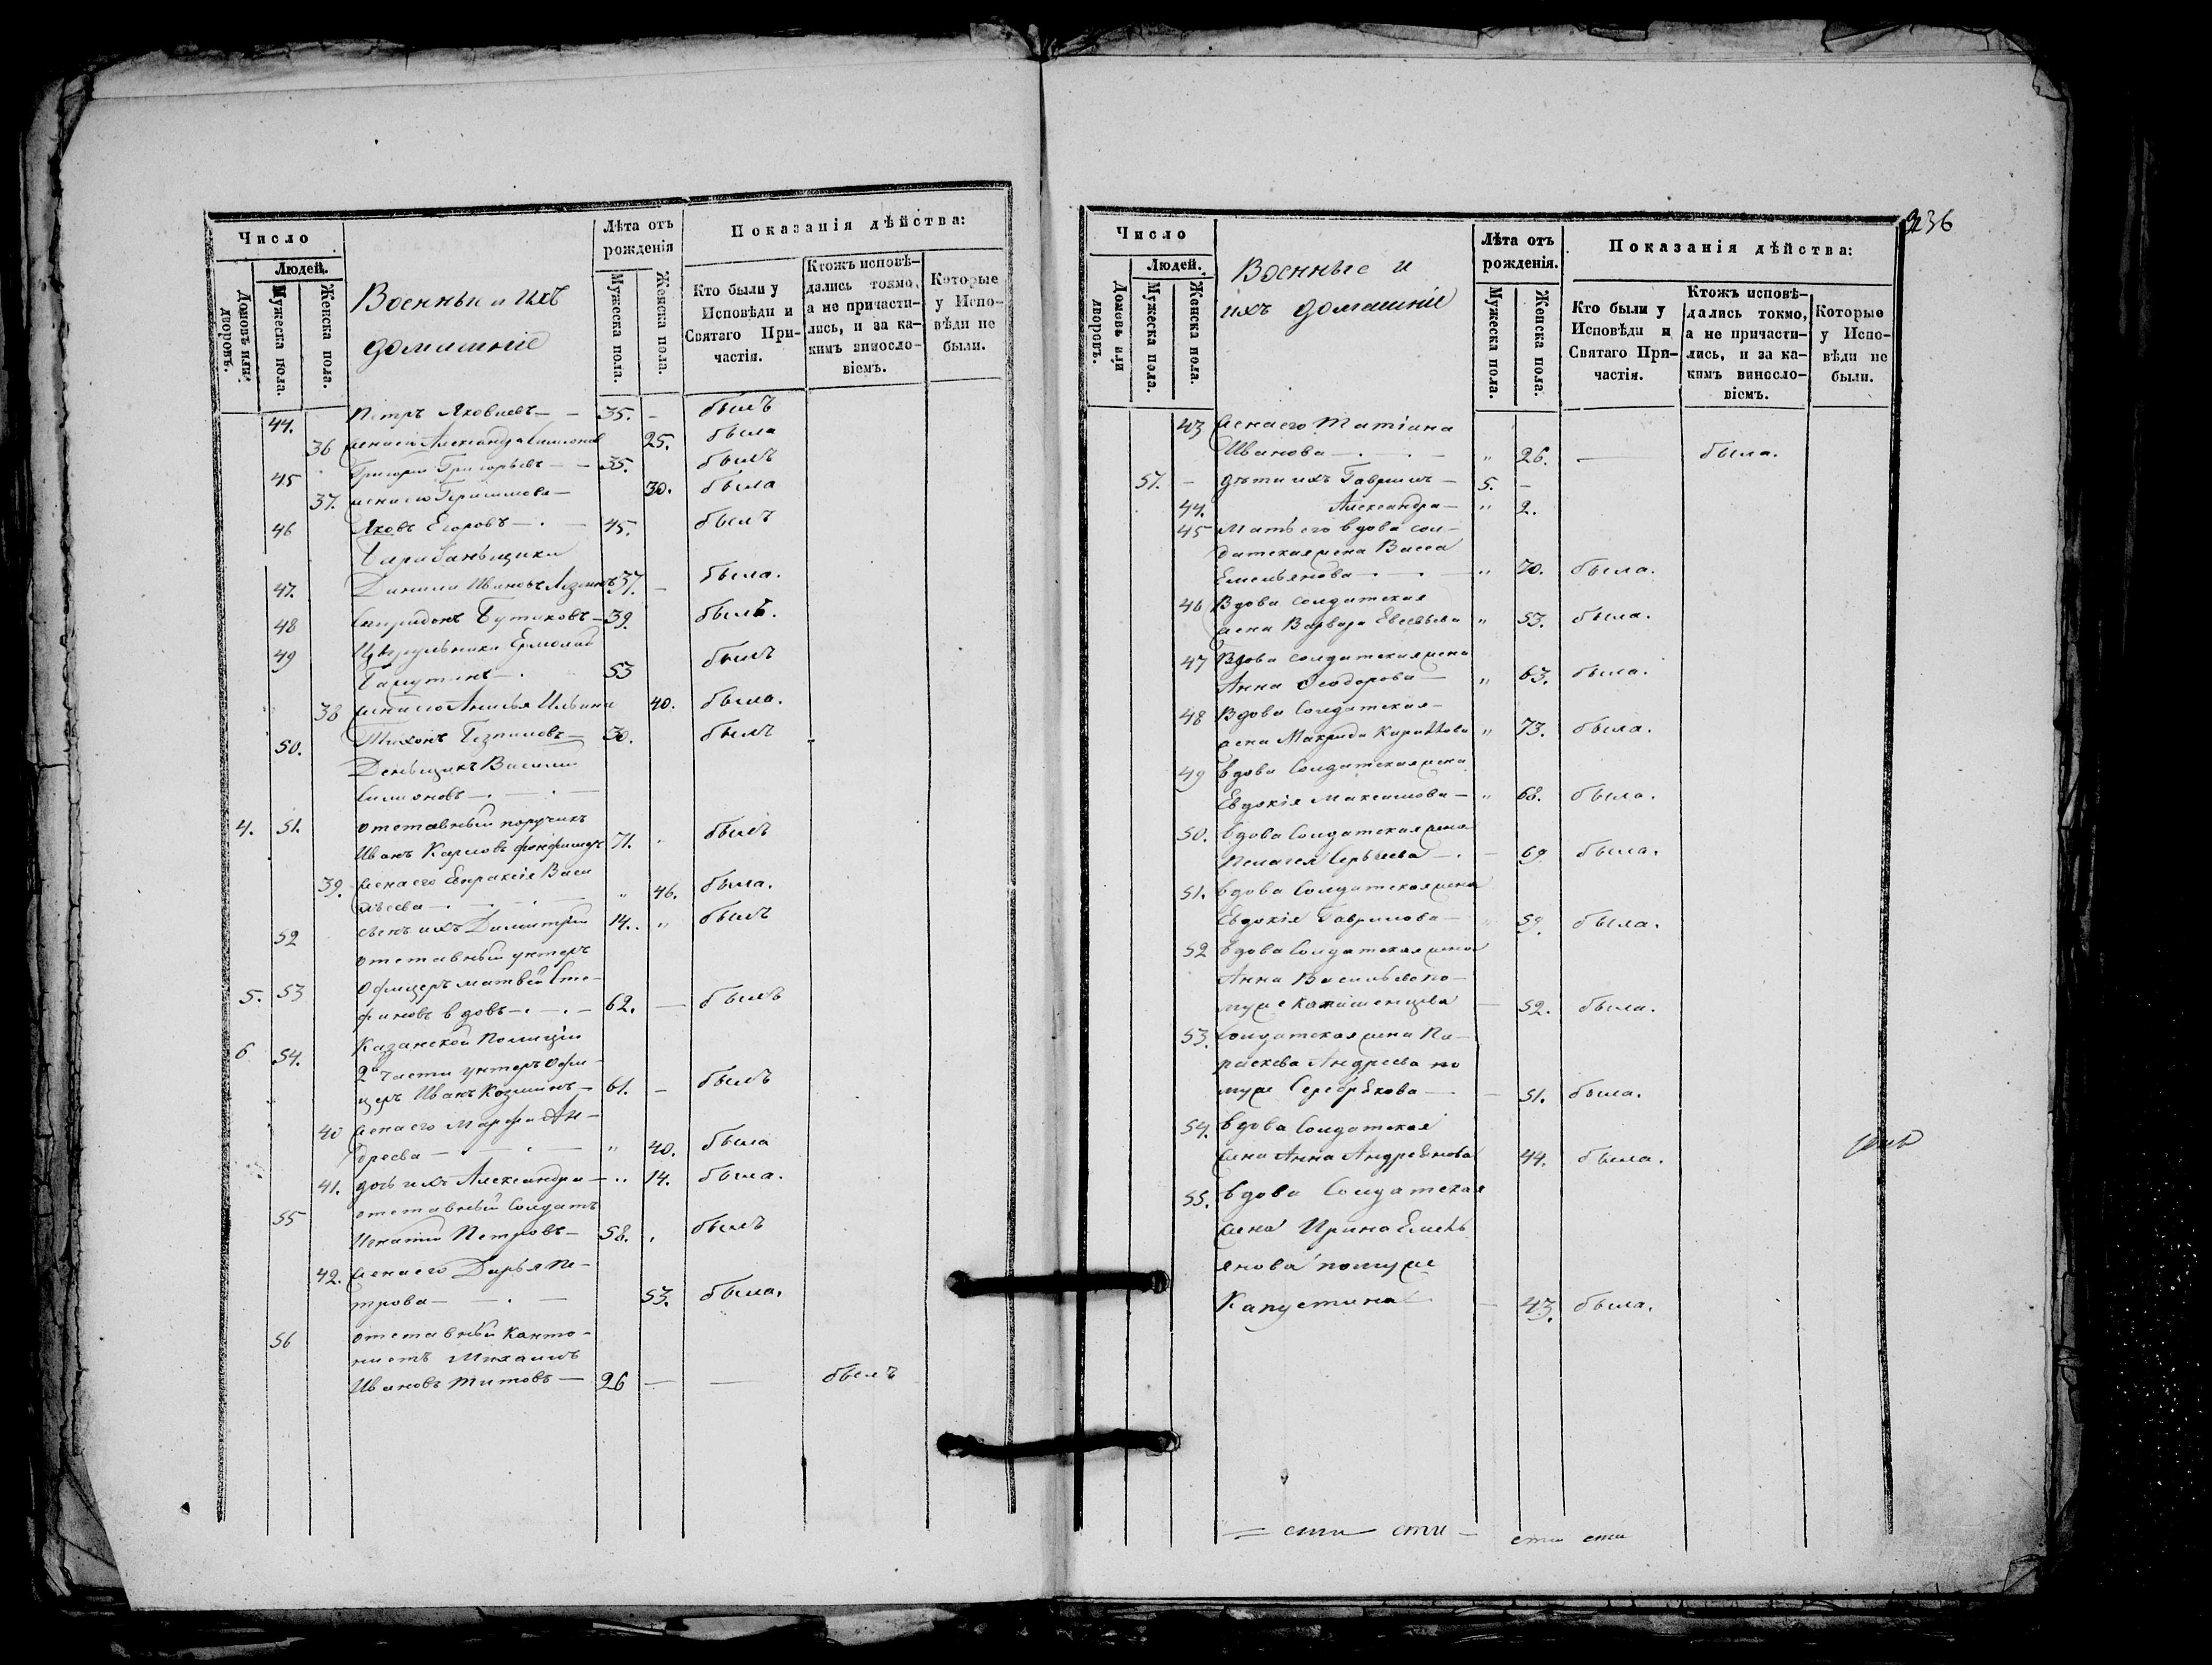 Число
Людей.
Домовъ или дворовъ.
Мужеска пола.
Женска пола.
Военныи и ихъ
домашніе
Лѣта отъ рожденія
Мужеска пола.
Женска пола.
Показанія дѣйства:
Кто были у Исповѣди и Святаго Причастія.
Ктожъ исповѣдались токмо, а не причастились, и за какимъ винословіемъ.
Которые у Исповѣди не были.
44. Петръ Яковлевъ — — 35. - былъ
36 жена его Александра 25. была
45 Григорій Григорьевъ — — 35. былъ
37. жена его 30. была
46 Яковъ Егоровъ —.— 45. былъ
Барабаньщики
47. Данила Ивановъ 37. - была.
48 Спиридонъ Бутаковъ — 39. былъ.
49 Ермолай
53 былъ
38 жена его Анисья Ильина 40. была.
50. Тихонъ 30. былъ
Деньщикъ Василій
—.—.—
4. 51. отставный поручикъ
Иванъ Карловъ 71. . былъ
39. жена его Евпраксія Васи
льева —.—.— „ 46. была.
52 сынъ ихъ Димитрій 14. „ былъ
отставный унтеръ
5. 53 офицеръ Матвей Сте-
фановъ вдовъ —.—.— 62. — былъ
6 54. Казанской Полиціи
2й части унтеръ офи-
церъ Иванъ Козминъ — 61. — былъ
40 жена его Марфа Ан-
дреева — — . — „ 40. была
41. дочь ихъ Александра — „ 14. была.
55 отставный Солдатъ
Игнатій Петровъ — 58. . былъ
42. жена его Дарья Пе-
трова — — . — 53. была.
56 отставный канто-
нистъ Михаилъ
Ивановъ Титовъ — 26 — — былъ
236
Число
Людей.
Домовъ или дворовъ.
Мужеска пола.
Женска пола.
Военные и
ихъ домашніе
Лѣта отъ рожденія.
Мужеска пола.
Женска пола.
Показанія дѣйства:
Кто были у Исповѣди и Святаго Причастія.
Ктожъ исповѣдались токмо, а не причастились, и за какимъ винословіемъ.
Которые у Исповѣди не были.
43 жена его Татіана
Иванова —.—.— „ 26. — была.
57. - дѣти ихъ Гаврилъ — 5. —
44. Александра — „ 2.
45 Мать его вдова сол-
датская жена Васса
Емельянова —.— „ 70. была.
46 Вдова солдатская
жена Варвара „ 53. была.
47 Вдова солдатская жена
Анна Ѳеодорова — „ 63. была.
48 Вдова Солдатская
жена Макрида Кирилова „ 73. была.
49 вдова Солдатская жена
Евдокія Максимова — „ 68. была.
50. вдова Солдатская жена
Пелагея Сергѣева —. — 69. была.
51. вдова Солдатская жена
Евдокія Гаврилова — 59. была.
52 вдова Солдатская жена
Анна Васильева по
мужѣ — 52. была.
53. Солдатская жена Па-
раскева Андреева по
мужѣ Серебрякова — — 51. была.
54. вдова Солдатская
жена Анна Андреянова 44. была.
55. вдова Солдатская
жена Ирина Емель
янова по мужѣ
Капустина — — 43. была.